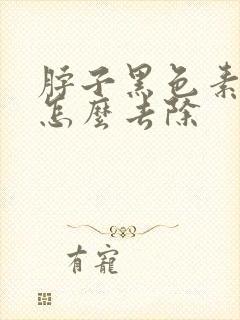 脖子黑色素
怎麼去除
有寵